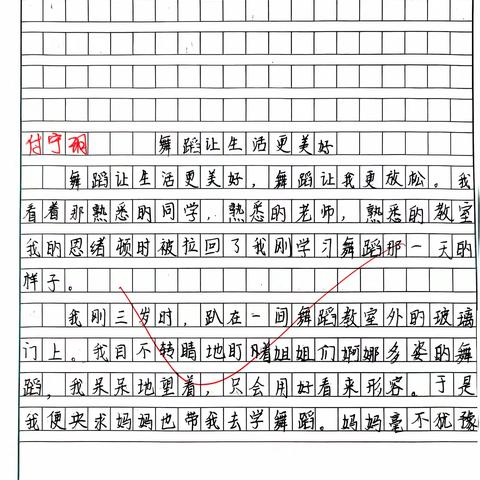 付宁珊 舞蹈让生活更美好
舞蹈让生活更美好，舞蹈让我更放松。我
看着那熟悉的同学，熟悉的老师，熟悉的教室
我的思绪顿时被拉回了我刚学习舞蹈那一天的
样子。
我刚三岁时，趴在一间舞蹈教室外的玻璃
门上。我目不转睛地盯着姐姐们婀娜多姿的舞
蹈，我呆呆地望着，只会用好看来形容。于是
我便央求妈妈也带我去学舞蹈。妈妈毫不犹豫